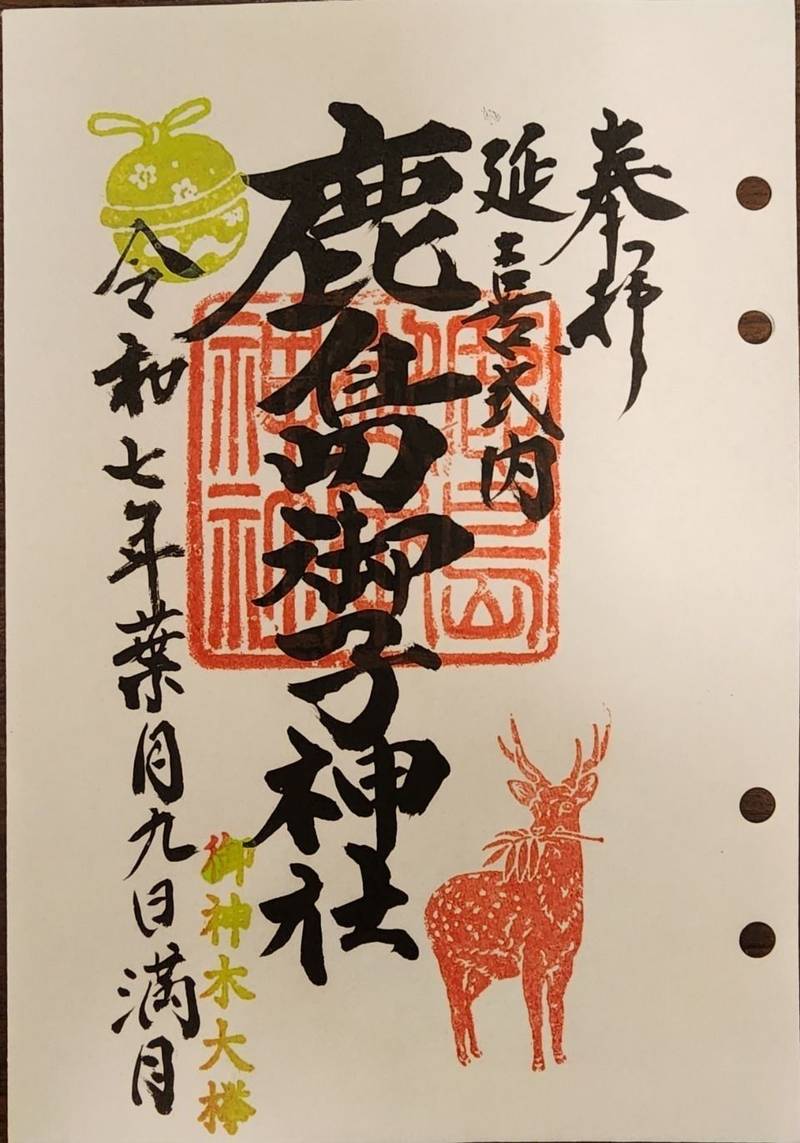 奉拝
延喜式内
鹿島御子神社
令和七年葉月九日満月
御神木大欅